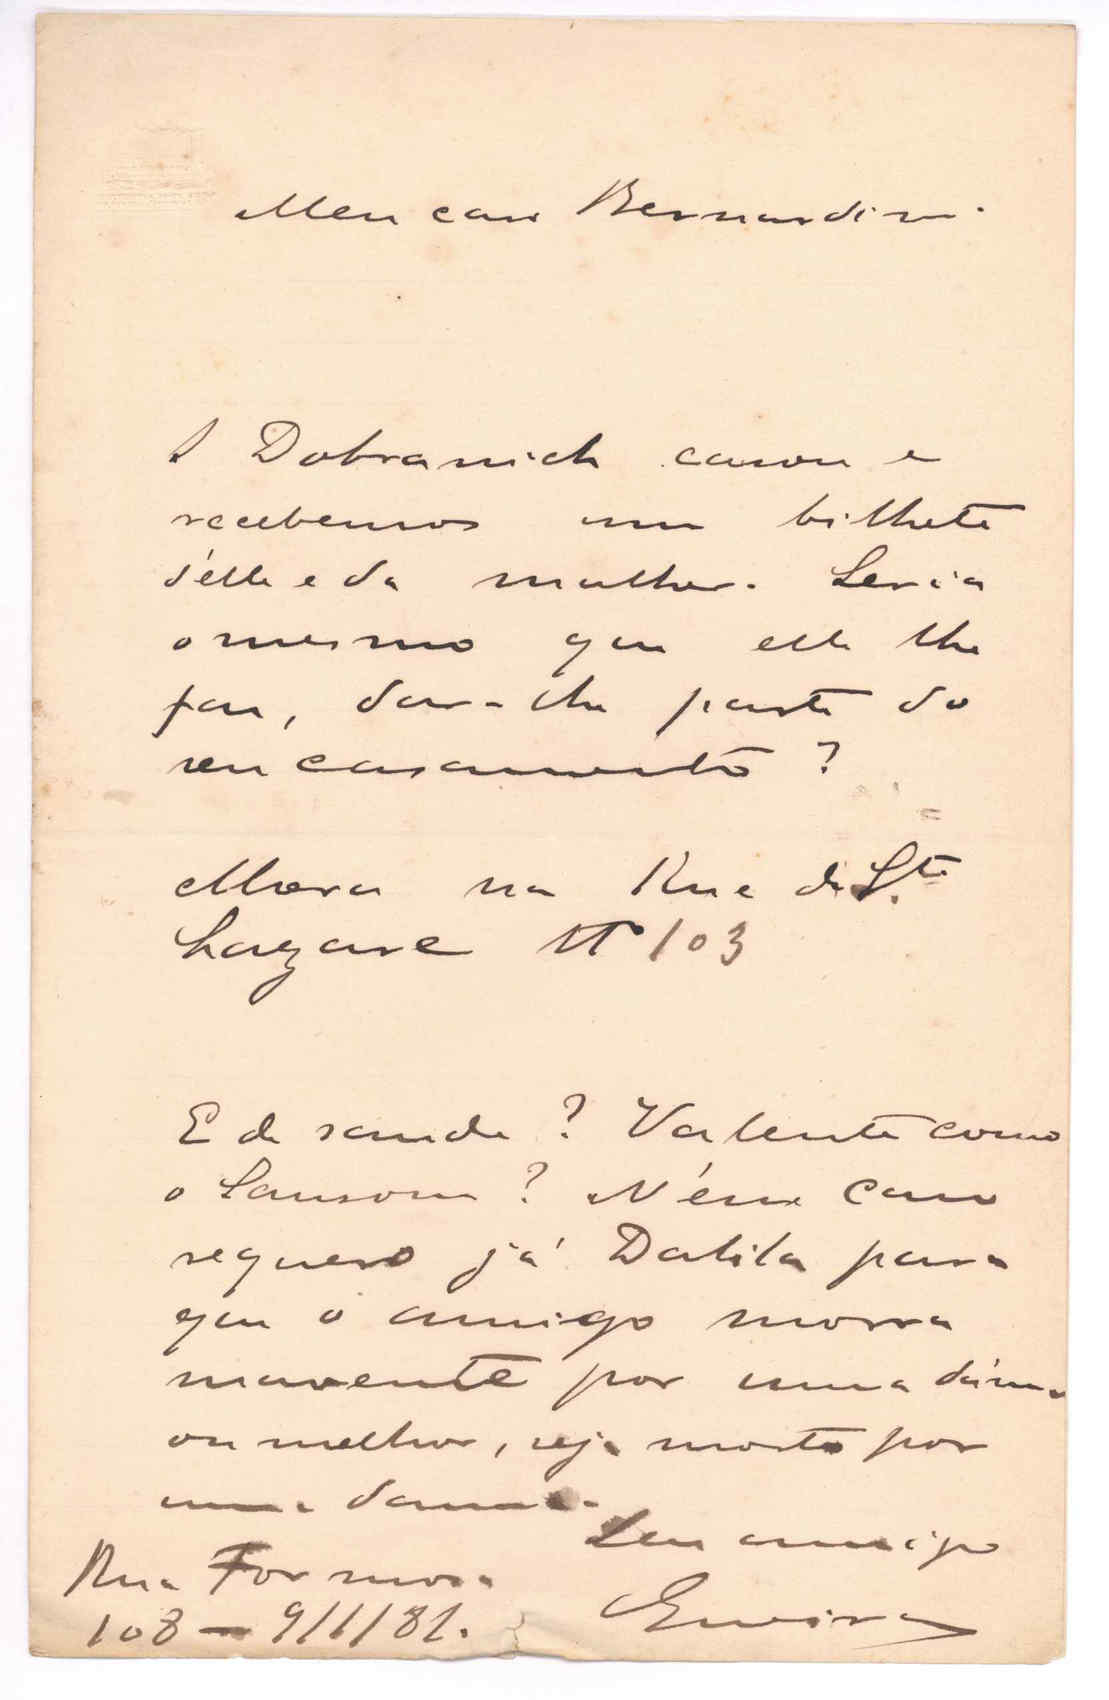 Meu caro Bernardino.
O Dobranich casou e
recebemos um bilhete
d'elle e da mulher. Seria
o mesmo que elle lhe
fou, dar-lhe parte do
seu casamento?
Mora na Rue de S.te
Lazare Nº 103
E de saude? Valente como
o Sansom? N'esse caso
requero já Dalila para
que o amigo morra
novamente por uma dama
ou melhor, seja morto por
uma dama.
Seu amigo
Rua Formosa
108 — 9/1/81.